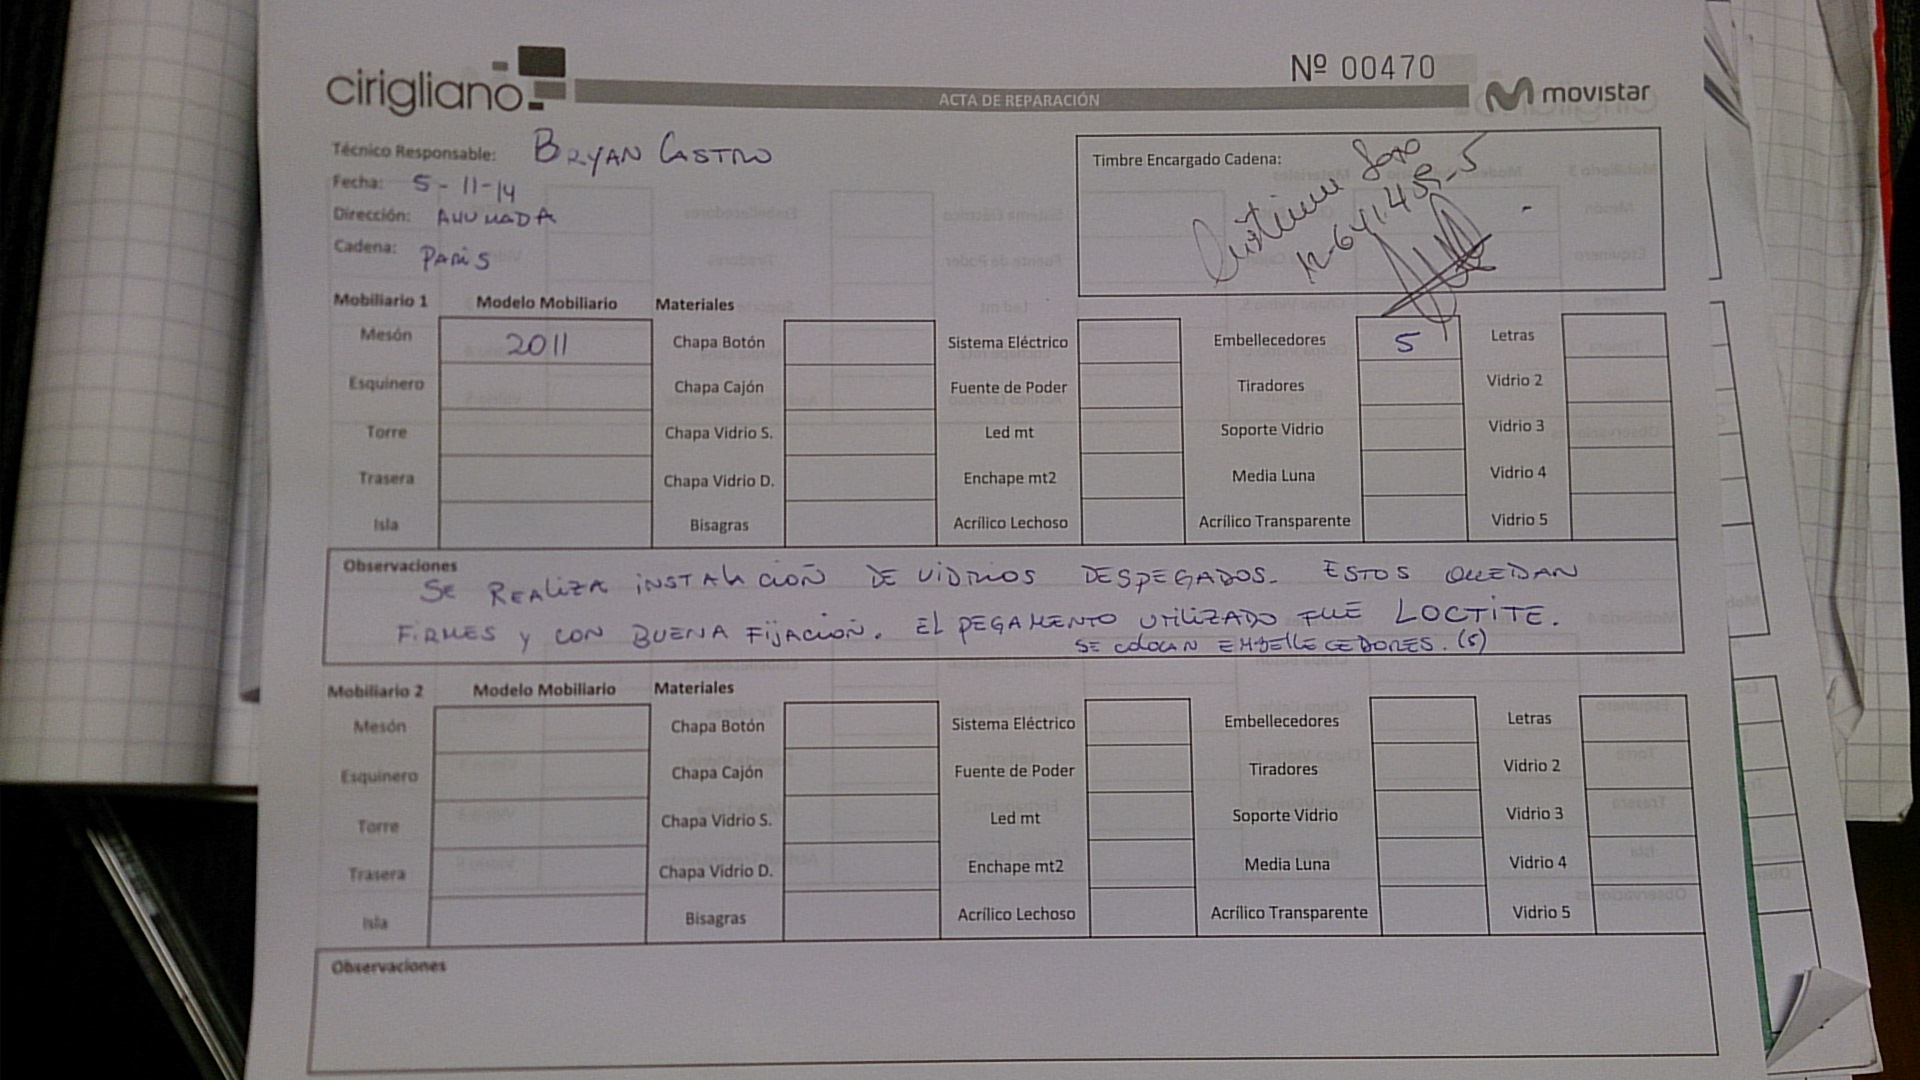 cirigliano
Nº 00470
ACTA DE REPARACIÓN
M movistar
Técnico Responsable: BRYAN CASTRO
Fecha: 5-11-14
Dirección: AHUMADA
Cadena: PARIS
Timbre Encargado Cadena:
Mobiliario 1 Modelo Mobiliario Materiales
Mesón 2011 Chapa Botón Sistema Eléctrico Embellecedores 5 Letras
Esquinero Chapa Cajón Fuente de Poder Tiradores Vidrio 2
Torre Chapa Vidrio S. Led mt Soporte Vidrio Vidrio 3
Trasera Chapa Vidrio D. Enchape mt2 Media Luna Vidrio 4
Isla Bisagras Acrílico Lechoso Acrílico Transparente Vidrio 5
Observaciones
SE REALIZA INSTALACIÓN DE VIDRIOS DESPEGADOS. ESTOS QUEDAN
FIRMES Y CON BUENA FIJACIÓN. EL PEGAMENTO UTILIZADO FUE LOCTITE.
SE COLOCAN EMBELLECEDORES. (5)
Mobiliario 2 Modelo Mobiliario Materiales
Mesón Chapa Botón Sistema Eléctrico Embellecedores Letras
Esquinero Chapa Cajón Fuente de Poder Tiradores Vidrio 2
Torre Chapa Vidrio S. Led mt Soporte Vidrio Vidrio 3
Trasera Chapa Vidrio D. Enchape mt2 Media Luna Vidrio 4
Isla Bisagras Acrílico Lechoso Acrílico Transparente Vidrio 5
Observaciones